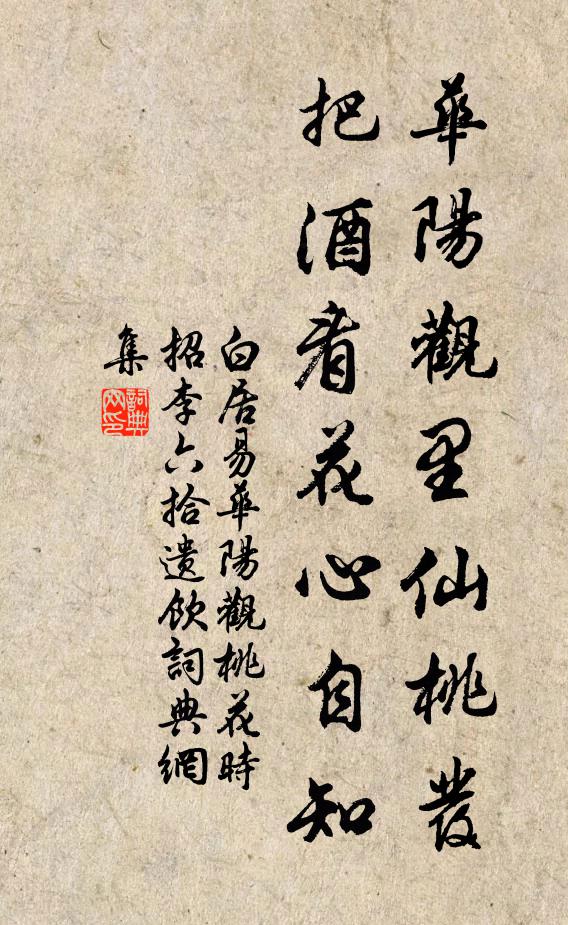 華陽觀里仙桃發
把酒看花心自知
白居易華陽觀桃花時
招李六拾遺飲詞典網
集
詞典
网印